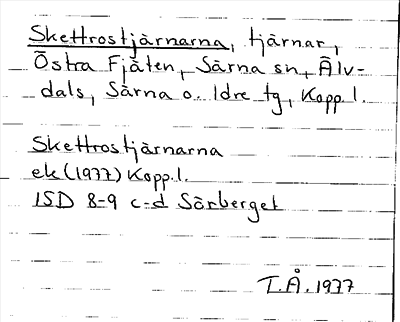 Skettrostjärnarna, tjärnar,
Östra Fjäten, Särna sn, Älv-
dals, Särna o. Idre tg, Kopp. l.
Skettrostjärnarna
ek (1977) Kopp. l.
15D 8-9 c-d Särberget
T.Å. 1977